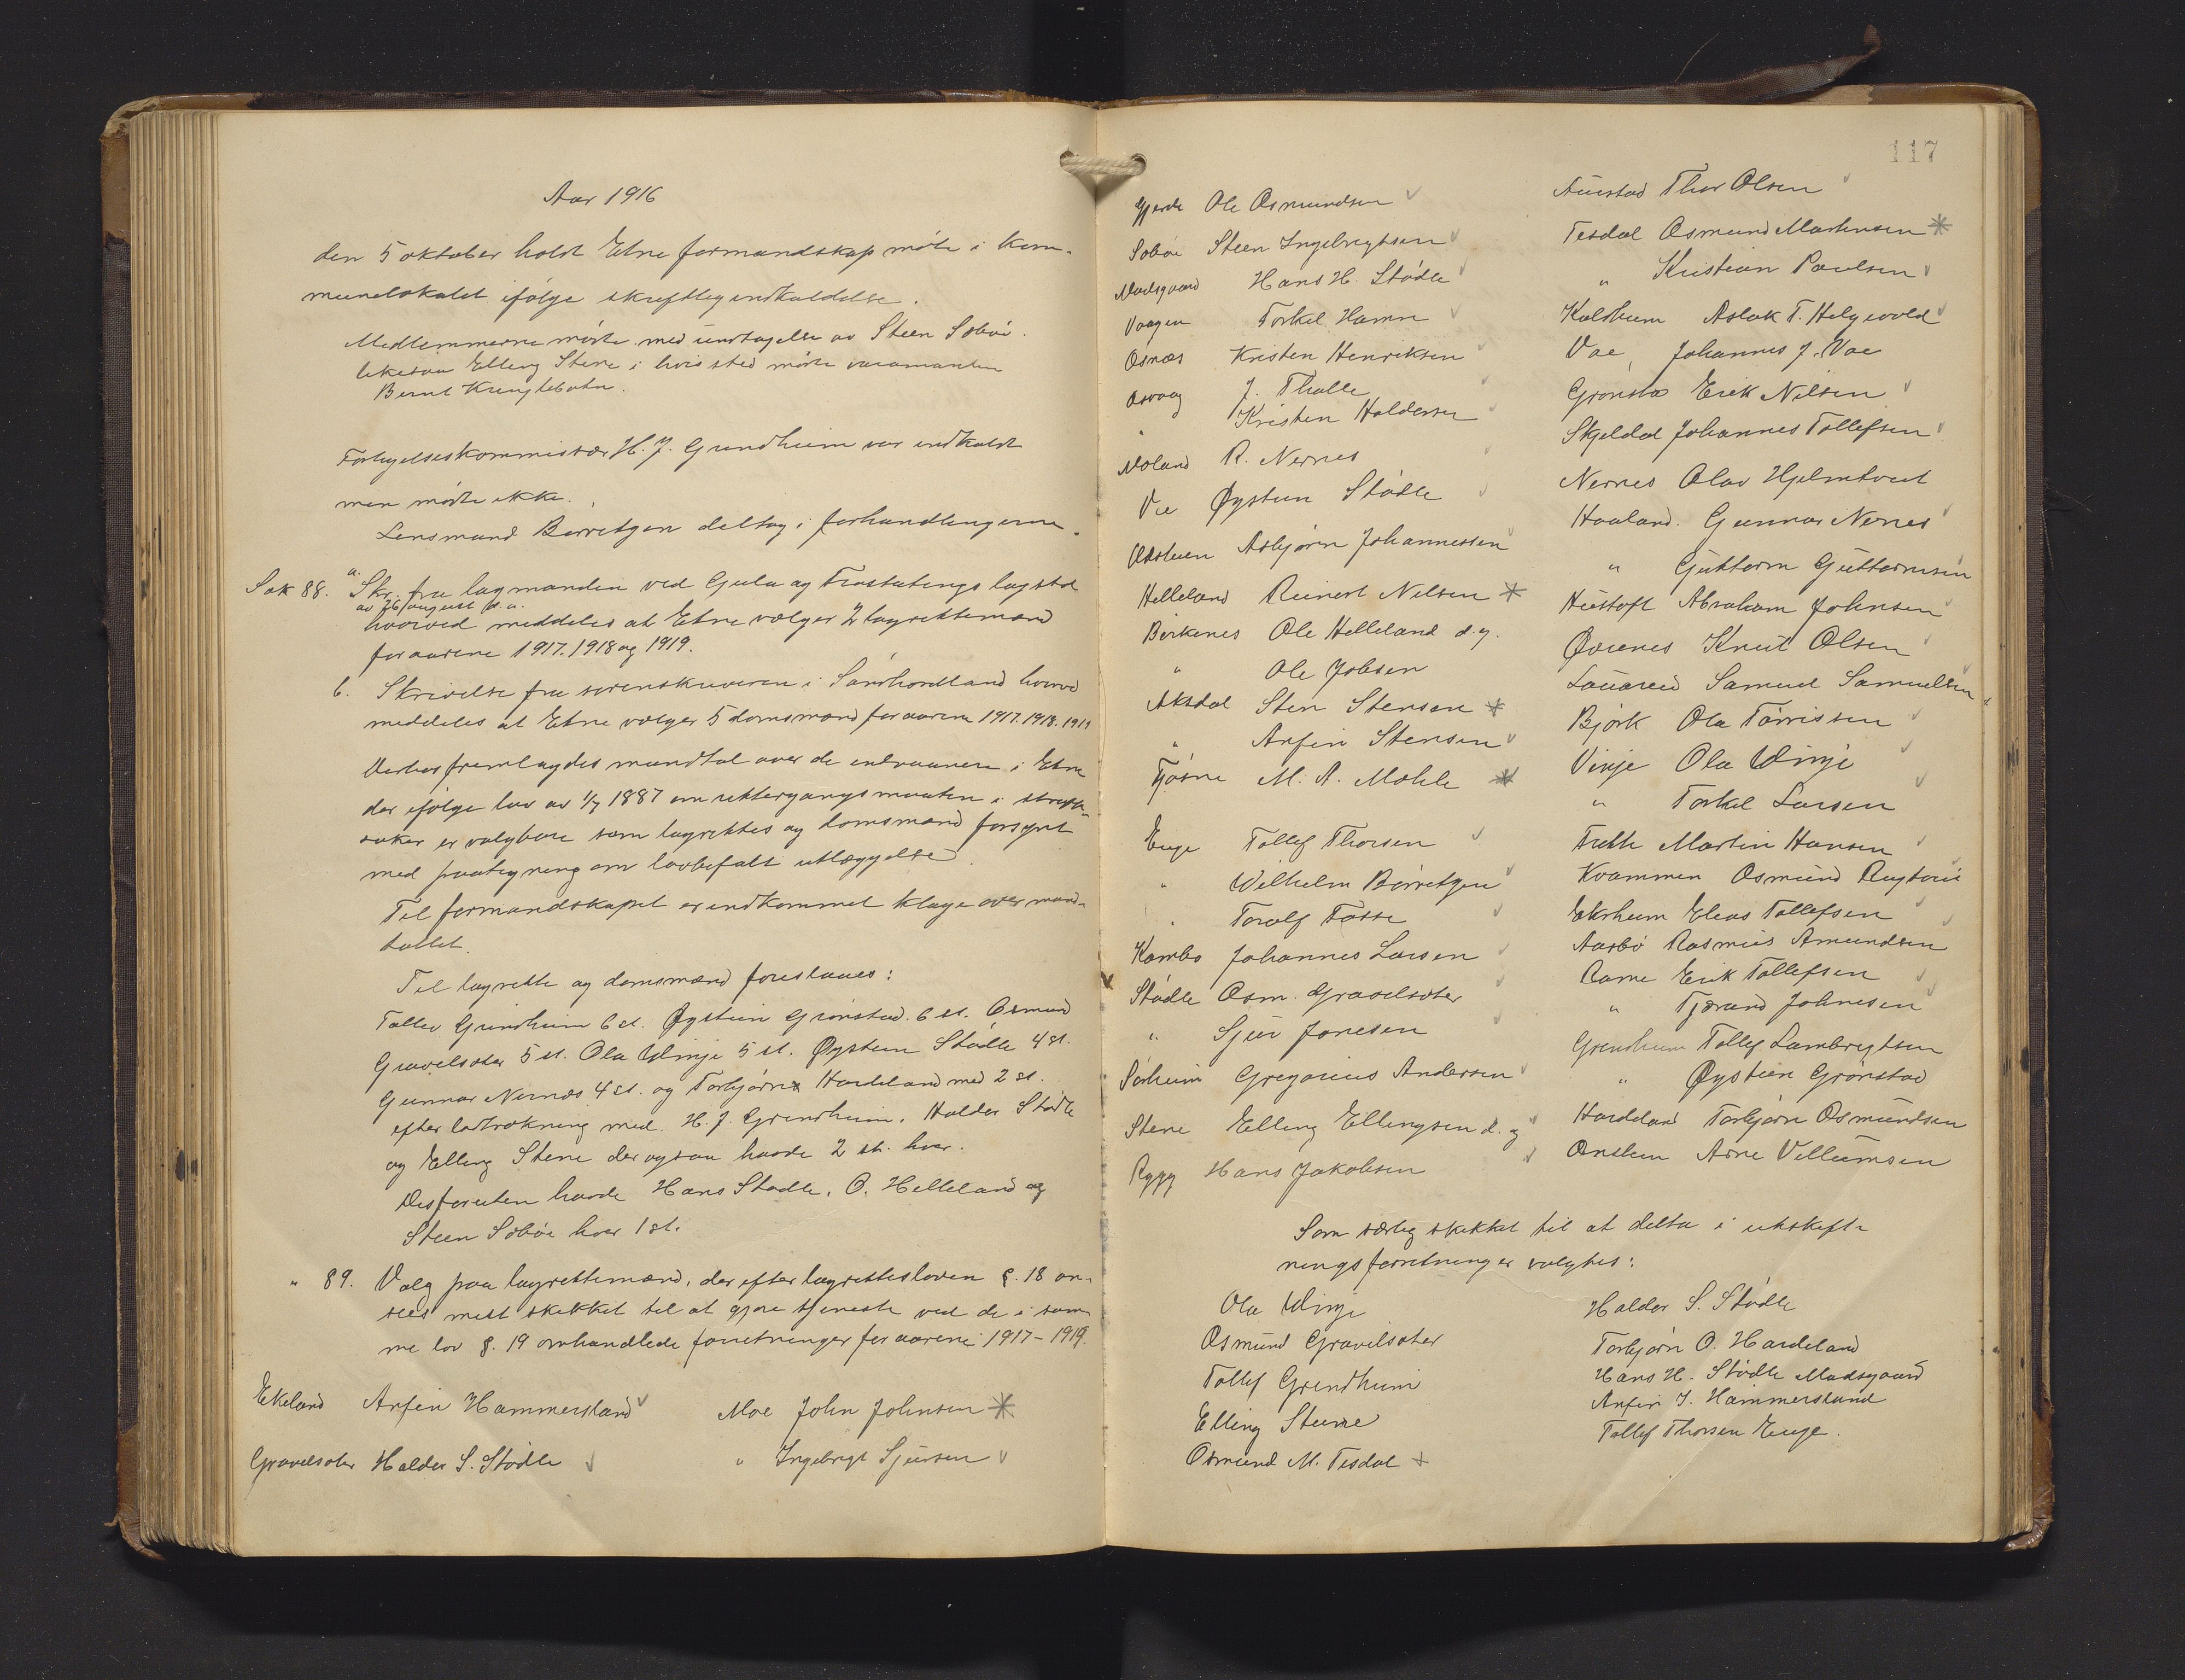 Aar 1916
den 5 oktober holdt Etne formandskap møte i kom-
munelokalet ifølge skriftlig indkaldelse.
Medlemmerne møtte med undtagelse av Steen Søbøe
likesaa Elling Stene i hvis sted møtte varamanden
Bernt Kringlebotn.
Forlikelseskommissær H. J. Grindheim var indkaldt
men møtte ikke.
Lensmand Børretzen deltog i forhandlingerne.
Sak 88. a. Skr. fra lagmanden ved Gula og Frostatings lagstol
av 26/august d. a.
hvorved meddeles at Etne vælger 2 lagrettemænd
for aarene 1917. 1918 og 1919.
b. Skrivelse fra sorenskriveren i Søndhordland hvorved
meddeles at Etne vælger 5 domsmænd for aarene 1917. 1918. 1919
Derhos fremlagdes mandtal over de indvaanere i Etne
der ifølge lov av 1/7 1887 om rettergangsmaaten i straffe-
saker er valgbare som lagrettes og domsmænd forsynt
med paategning om lovbefalt utlæggelse.
Til formandskapet er indkommet klage over mand-
tallet.
Til lagrette og domsmænd foreslaaes:
Tollev Grindheim 6 st. Øystein Grønstad. 6 st. Osmund
Gravelsæter 5 st. Ola Vinje 5 st. Øystein Stødle 4 st.
Gunnar Nernæs 4 st. og Torbjørn Hardeland med 2 st.
efter lodtrækning med H. J. Grindheim, Haldor Stødle
og Elling Stene der ogsaa havde 2 st. hver.
Desforuten havde Hans Stødle, O. Helleland og
Steen Søbøe hver 1 st.
" 89. Valg paa lagrettemænd, der efter lagretteloven §. 18 an-
sees mest skikket til at gjøre tjeneste ved de i sam-
me lov §. 19 omhandlede forretninger for aarene 1917-1919.
Ekeland Arfin Hammersland
Moe John Johnsen *
Gravelsæter Haldor S. Stødle
" Ingebrigt Sjursen
117
Gjerde Ole Osmundsen
Søbøe Steen Ingebrigtsen
Madsgaard Hans H. Stødle
Vaagen Torkel Hamn
Osnæs Kristen Henriksen
Osvaag J. Tholle
" Kristen Haldorsen
Moland R. Nernes
Vee Øystein Stødle
Asbjørn Johannessen
Helleland Reinert Nilsen *
Birkenes Ole Helleland d.y.
" Ole Jobsen
Aksdal Sten Stensen *
" Arfin Stensen
Tjøsne M. A. Mæhle *
Enge Tollef Thorsen
" Wilhelm Børretzen
" Toralf Fosse
Kambo Johannes Larsen
Stødle Osm. Gravelsæter
" Sjur Jonesen
Sørheim Gregorius Andersen
Stene Elling Ellingsen d. y
Rygg Hans Jakobsen
Austad Thor Olsen
Tesdal Osmund Mortensen *
" Kristian Paulsen
Kaldheim Aslak T. Helgevold
Vae, Johannes J. Vae
Grønstad Erik Nilsen
Skjeldal Johannes Tollefsen
Nernes Olav Hjelmtveit
Haaland. Gunnar Nernes
" Guttorm Guttormsen
Hustoft Abraham Johnsen
Øvrenes Knut Olsen
Samuel Samuelsen
Bjørk Ola Tørrissen
Vinje Ola Vinje
" Torkel Larsen
Frette Martin Hansen
Kvammen Osmund
Ekrheim Elias Tollefsen
Aarbø Rasmus Amundsen
Rame Erik Tollefsen
" Tjærand Johnesen
Grindheim Tollef Lambrigtsen
" Øystein Grønstad
Hardeland Torbjørn Osmundsen
Onsheim Arne Villumsen
Som særlig skikket til at delta i utskift-
ningsforretninger valgtes:
Ola Vinje
Osmund Gravelsæter
Tollef Grindheim
Elling Steene
Osmund M. Tesdal +
Haldor S. Stødle
Torbjørn O. Hardeland
Hans H. Stødle Madsgaard
Arfin J. Hammersland
Tollef Thorsen Enge.